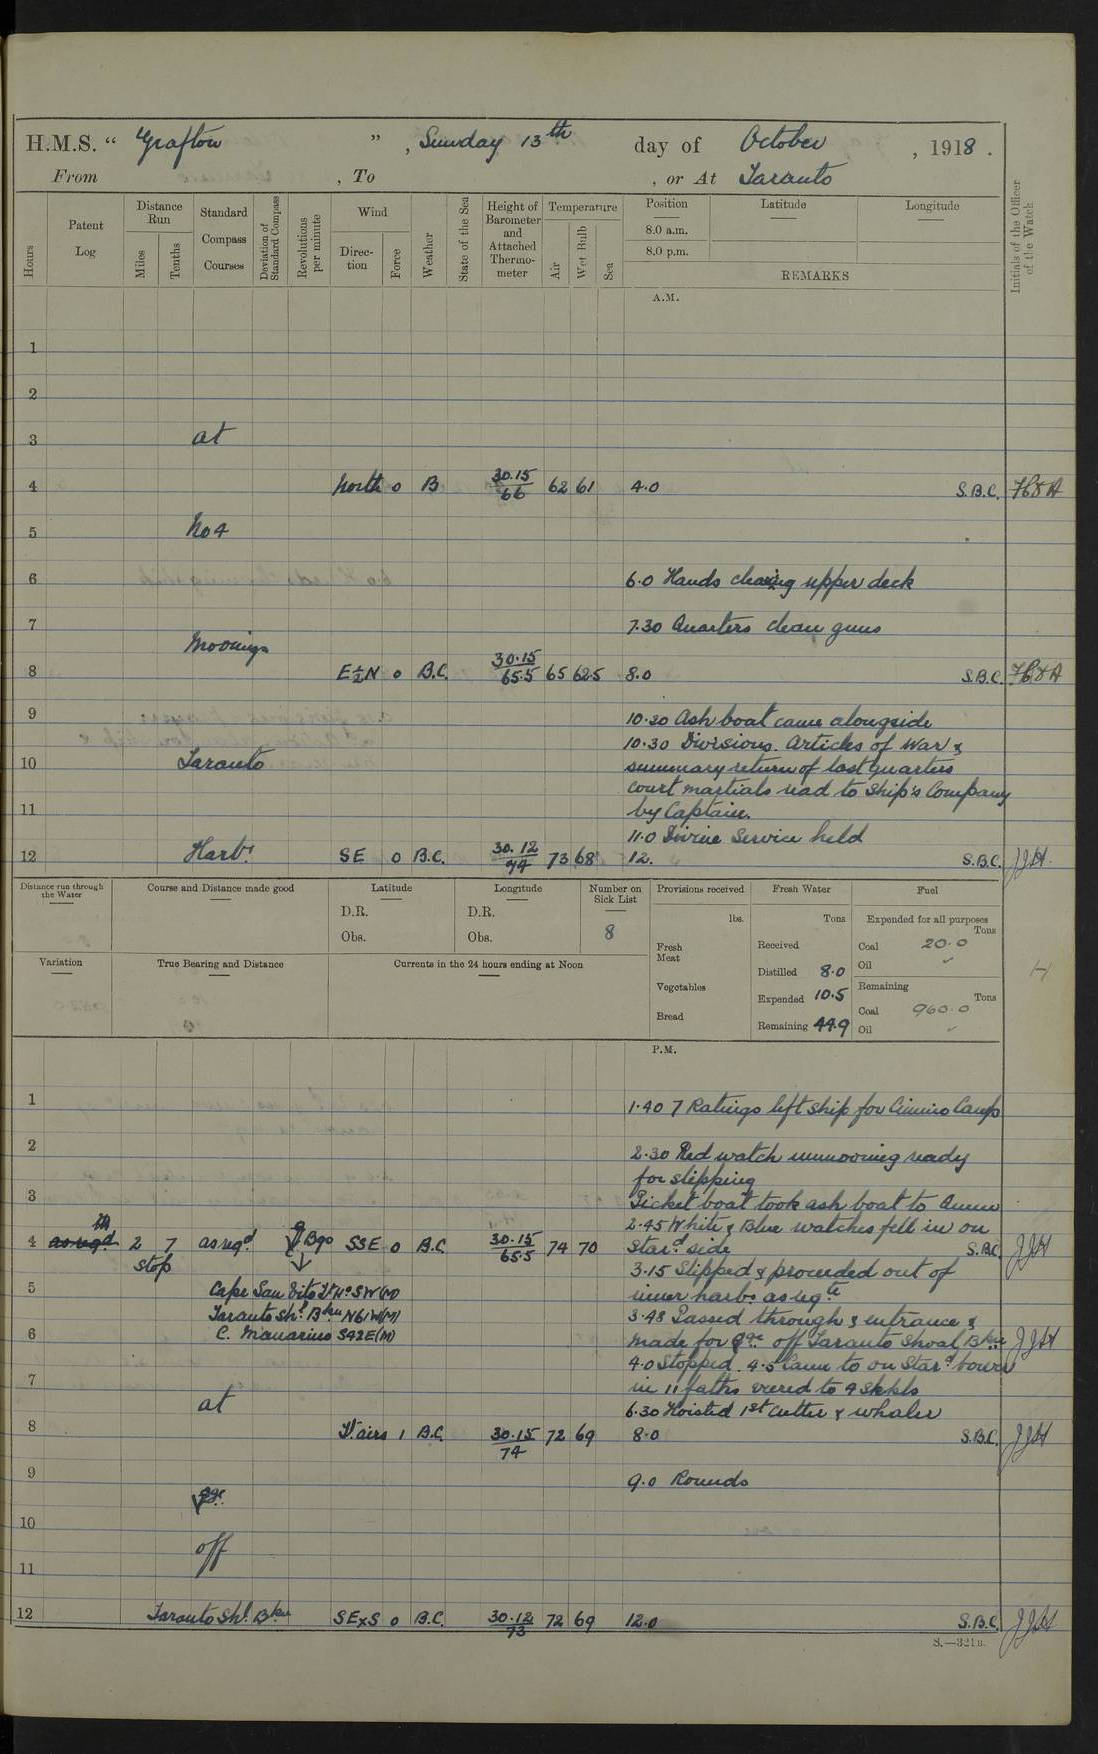 H.M.S. “ Grafton ” , Sunday 13th day of October , 1918 .
From , To , or At Taranto
Hours
Patent Log
Distance Run
Miles
Tenths
Standard Compass Courses
Deviation of Standard Compass
Revolutions per minute
Wind
Direc-tion
Force
Weather
State of the Sea
Height of Barometer and Attached Thermo-meter
Temperature
Air
Wet Bulb
Sea
Position
8.0 a.m.
8.0 p.m.
Latitude
Longitude
REMARKS
Initials of the Officer of the Watch
A.M.
1
2
3 at
4 North 0 B 30.15/66 62 61 4.0 S.B.C.
5 No 4
6 6.0 Hands cleaning upper deck
7 7.30 Quarters clean guns
Moorings
8 E½N 0 B.C. 30.15/65.5 65 62.5 8.0 S.B.C.
9 10.20 Ash boat came alongside
10.30 Divisions. Articles of War &
10 Taranto summary return of last quarters
court martials read to Ship's Company
11 by Captain.
11.0 Divine Service held
12 Harbr. SE 0 B.C. 30.12/74 73 68 12. S.B.C. JJH.
Distance run through the Water
Course and Distance made good
Latitude
D.R.
Obs.
Longitude
D.R.
Obs.
Number on Sick List
8
Provisions received
lbs.
Fresh Meat
Vegetables
Bread
Fresh Water
Tons
Received
Distilled 8.0
Expended 10.5
Remaining 44.9
Fuel
Expended for all purposes
Tons
Coal 20.0
Oil "
Remaining
Tons
Coal 960.0
Oil "
Variation
True Bearing and Distance
Currents in the 24 hours ending at Noon
P.M.
1 1.40 7 Ratings left ship for Cimino Camp
2 2.30 Red watch unmooring ready
for slipping
3 Picket boat took ash boat to
2.45 White & Blue watches fell in on
4 as reqd 2 7 as reqd Bgs SSE 0 B.C. 30.15/65.5 74 70 Stard. side S.B.C. JJH
stop 3.15 Slipped & proceeded out of
5 Cape San Vito Lt Ho SW(M) inner harbr. as reqte
Taranto Shl. Bkn N61W(M) 3.48 Passed through & entrance &
6 S42E(M) made for age off Taranto Shoal Bkn JJH
4.0 Stopped. 4.5 Came to on Stard bower
7 in 11 faths veered to 4 Skkls
at 6.30 Hoisted 1st Cutter & whaler
8 Lt airs 1 B.C. 30.15/74 72 69 8.0 S.B.C. JJH
9 9.0 Rounds
age
10
off
11
12 Taranto Shl. Bkn SExS 0 B.C. 30.12/73 72 69 12.0 S.B.C. JJH
S.—321B.